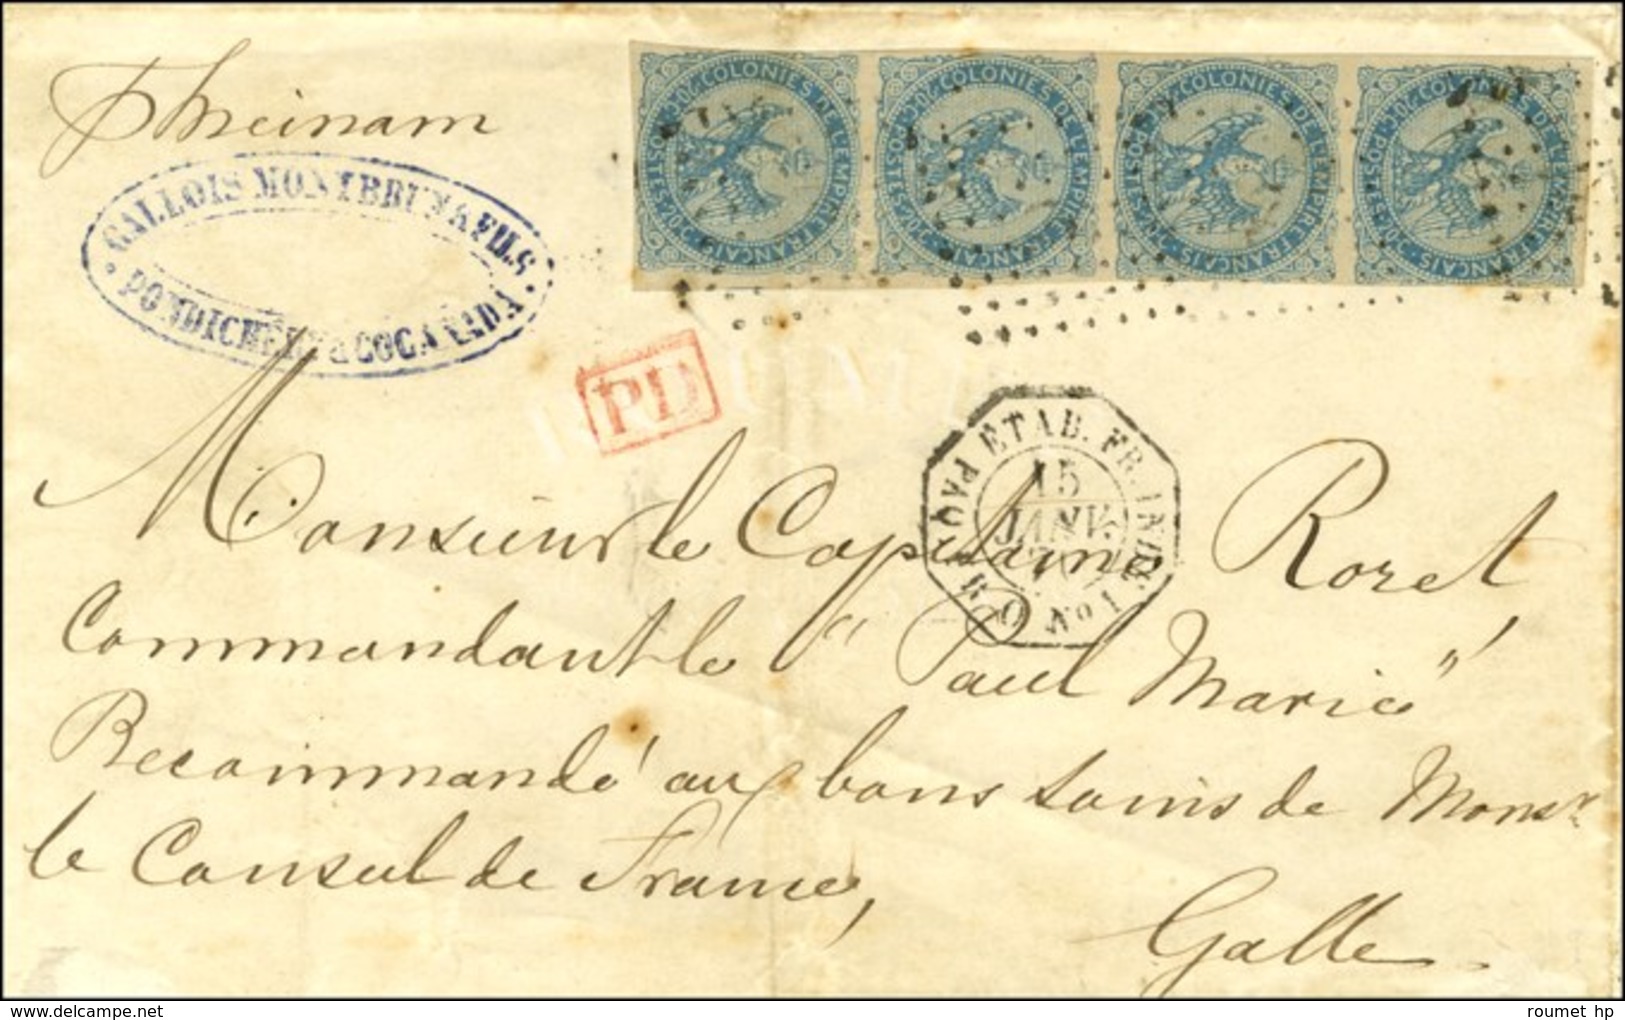 Theinam
GALLOIS MONTBRUN & FILS
PONDICHERY & COCANADA
COLONIES DE L'EMPIRE FRANÇAIS 20c POSTES 20c
COLONIES DE L'EMPIRE FRANÇAIS 20c POSTES 20c
COLONIES DE L'EMPIRE FRANÇAIS 20c POSTES 20c
COLONIES DE L'EMPIRE FRANÇAIS 20c POSTES 20c
PD
ETAB. FR. INDE
15
JANV.
PAQ. FR. O No 1
Monsieur le Capitaine Roret,
Commandant le "Paul Marie"
Recommandé aux bons soins de Monsr
le Consul de France,
Galle
delcampe.net
roumet hp